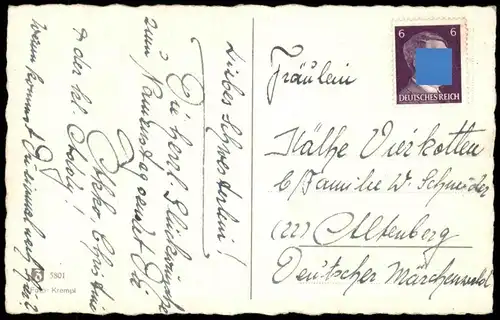 Liebes Schwesterlein!
Die herzl. Glückwünsche
zum Namenstag sendet Dir
Christine
& der kl.
Wann kommst Du einmal nach
5801
Foto: Krempl
6 6
DEUTSCHES REICH
Fräulein
Käthe Vierkotten
b/Familie W. Schneider
(22) Altenberg
Deutscher Märchenwald